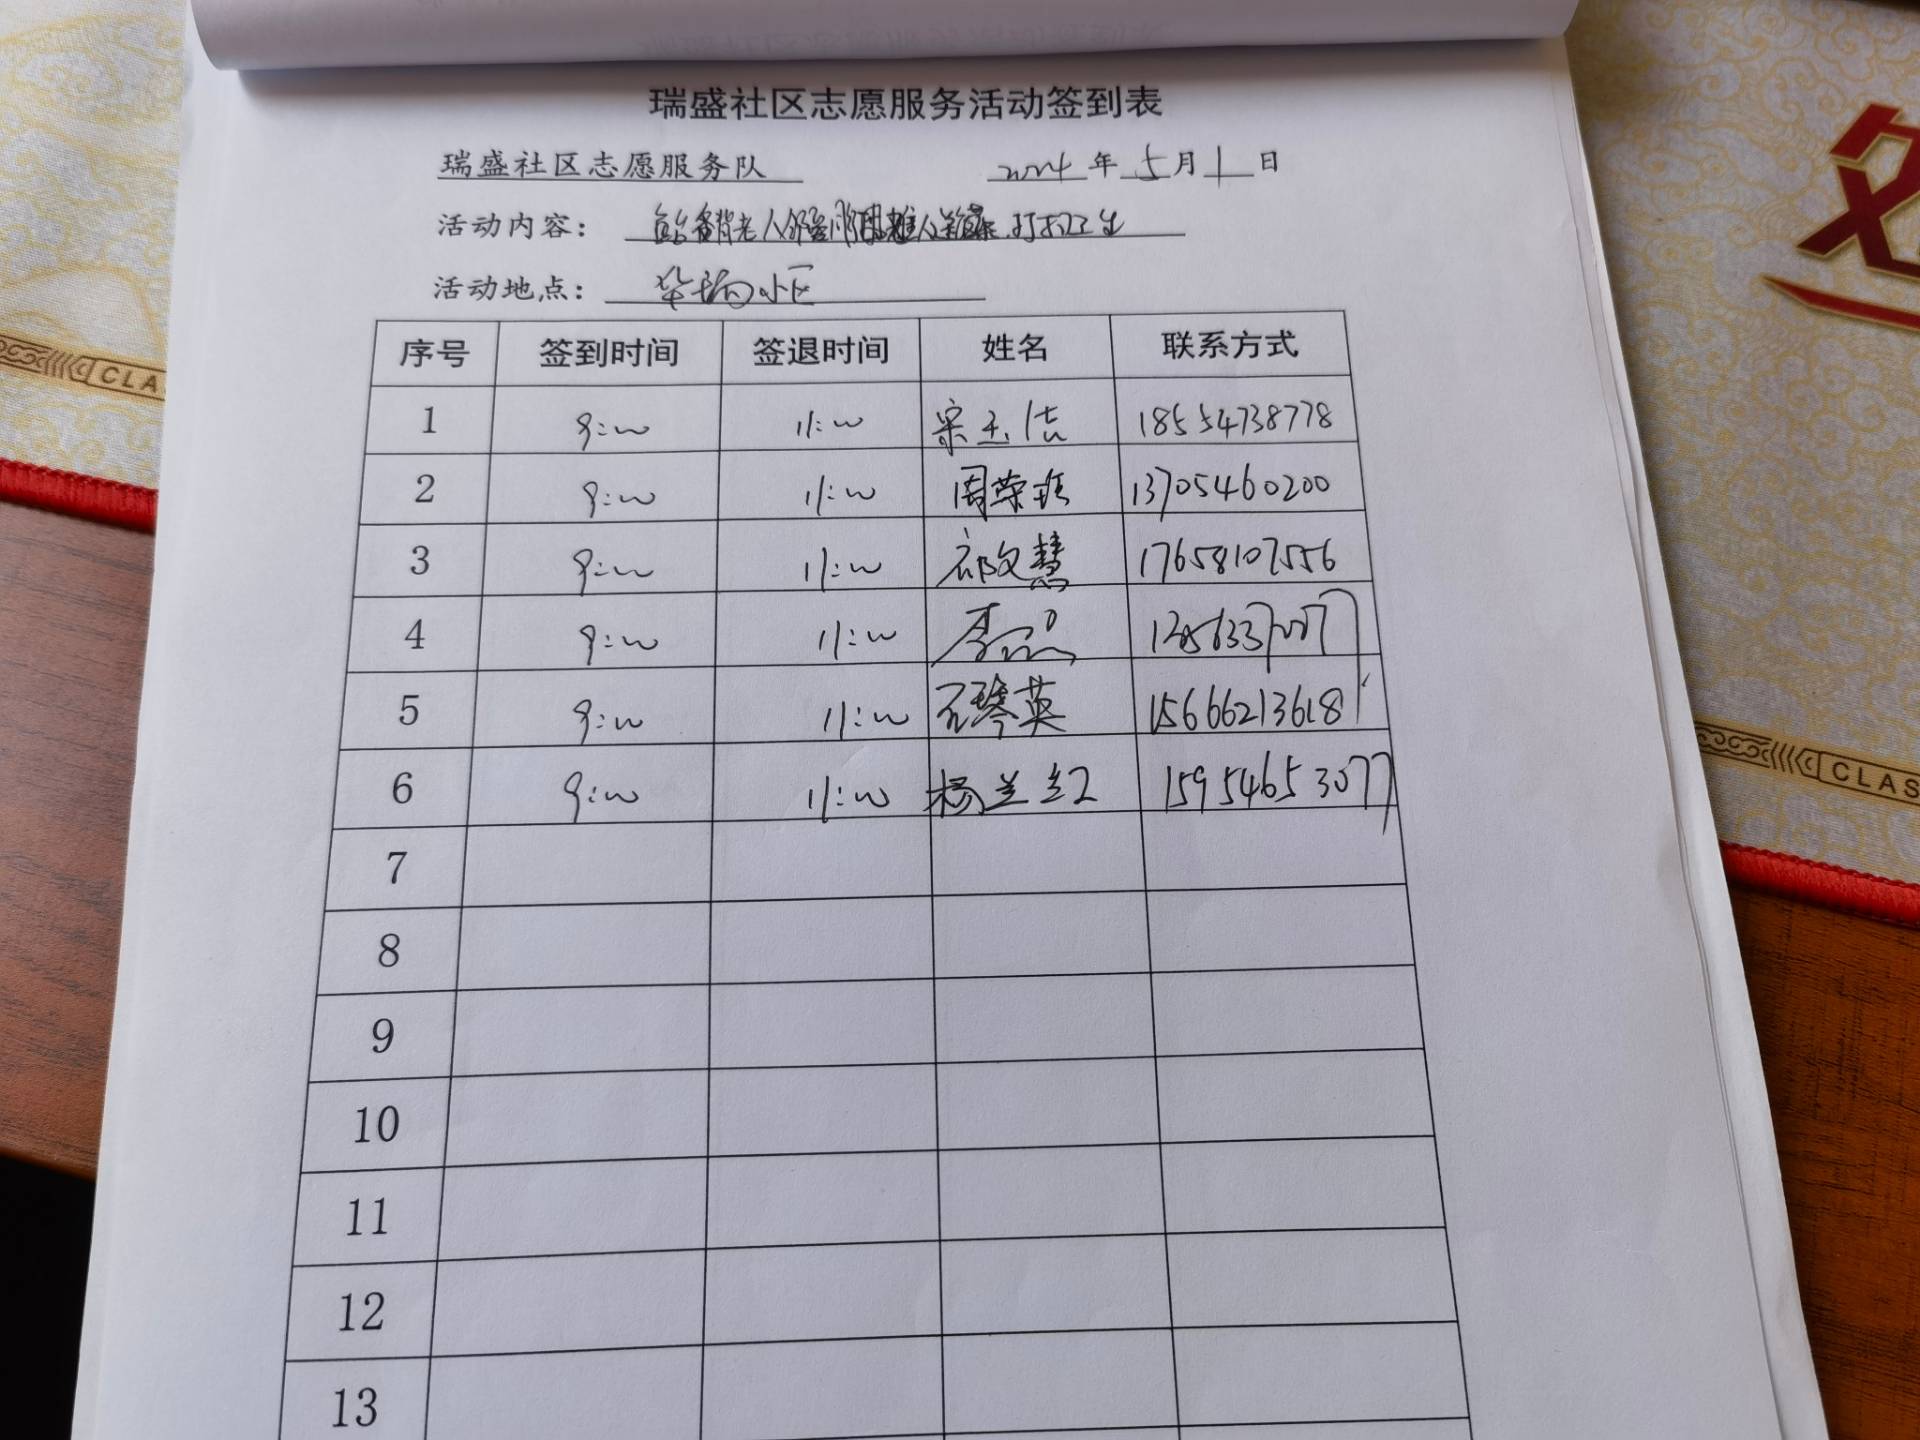 瑞盛社区志愿服务活动签到表
瑞盛社区志愿服务队 2024年5月1日
活动内容： 老人 打扫卫生
活动地点： 华瑞小区
序号 签到时间 签退时间 姓名 联系方式
1 9:00 11:00 宋玉洁 18554738778
2 9:00 11:00 周荣班 13705460200
3 9:00 11:00 祁文慧 17658107556
4 9:00 11:00 李
5 9:00 11:00 石琴英 15666213618
6 9:00 11:00 杨兰红 15954653077
7
8
9
10
11
12
13
CLA
CLAS